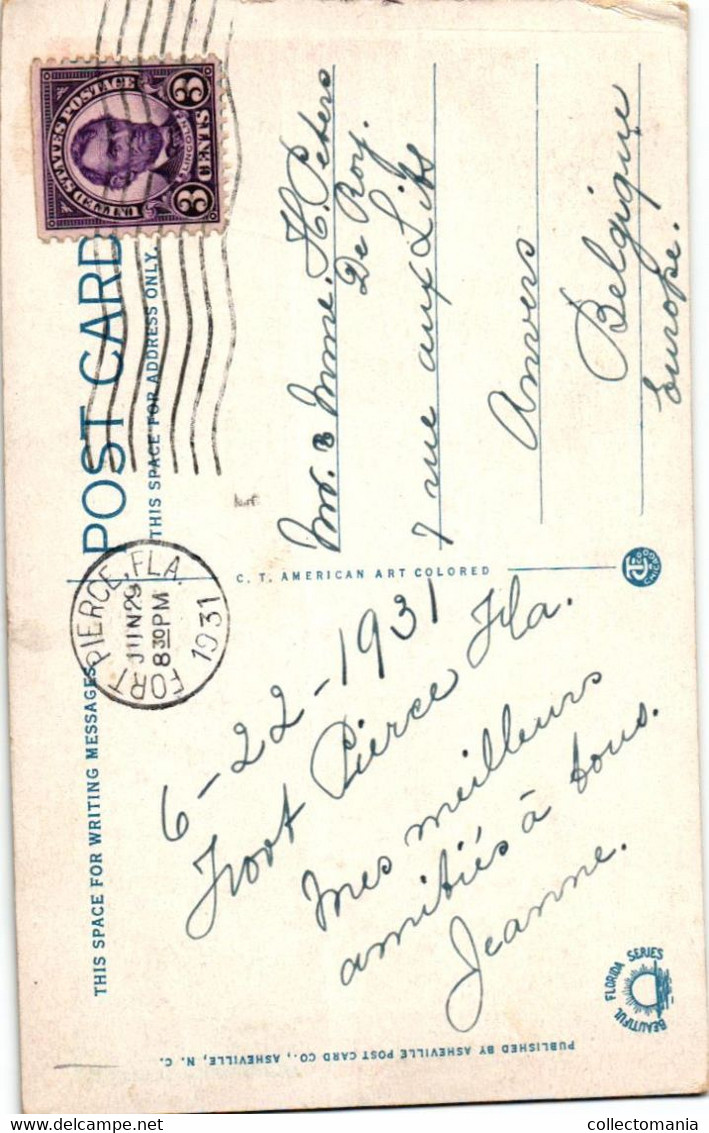 THIS SPACE FOR WRITING MESSAGES
POST CARD
THIS SPACE FOR ADDRESS ONLY.
UNITED STATES POSTAGE
LINCOLN
3 CENTS 3
FORT PIERCE, FLA.
JUN 29
8 30 PM
1931
6-22-1931
Foort Pierce Fla.
Mes meilleurs
amitiés à tous.
Jeanne.
C. T. AMERICAN ART COLORED
Mr. & Mme. H. Peters
De Roy.
7 rue aux Lits
Anvers
Belgique
Europe.
BEAUTIFUL FLORIDA SERIES
PUBLISHED BY ASHEVILLE POST CARD CO., ASHEVILLE, N. C.
collectomania